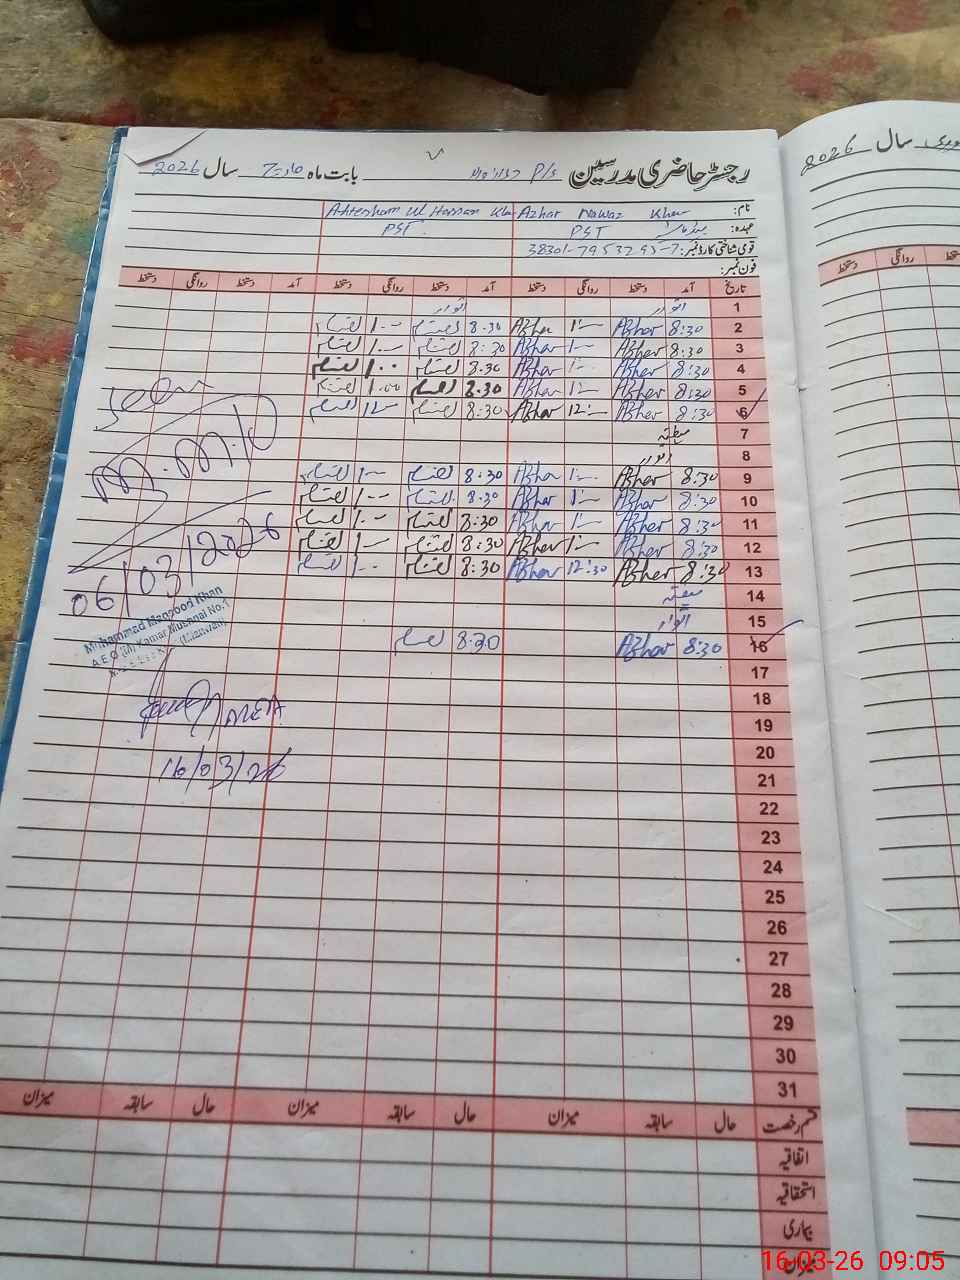 رجسٹر حاضری مدرسین P/S بابت ماہ مارچ سال 2026
نام: Azhar Nawaz Khan Ahtesham ul Hassan Kha
عہدہ: PST PST
قومی شناختی کارڈ نمبر: 38301-7953295-7
فون نمبر:
تاریخ آمد دستخط روانگی دستخط آمد دستخط روانگی دستخط آمد دستخط روانگی دستخط
1 اتوار اتوار
2 8:30 Azhar 1:- Azhar 8.30 احتشام 1:- احتشام
3 8:30 Azhar 1:- Azhar 8:30 احتشام 1:- احتشام
4 8:30 Azhar 1:- Azhar 8.30 احتشام 1.00 احتشام
5 8:30 Azhar 1:- Azhar 8.30 احتشام 1.00 احتشام
6 8:30 Azhar 12:- Azhar 8:30 احتشام 12:- احتشام
7 ہفتہ
8 اتوار
9 8:30 Azhar 1:- Azhar 8:30 احتشام 1:- احتشام
10 8:30 Azhar 1:- Azhar 8.30 احتشام 1:- احتشام
11 8:30 Azhar 1:- Azhar 8:30 احتشام 1:- احتشام
12 8:30 Azhar 1:- Azhar 8:30 احتشام 1:- احتشام
13 8:30 Azhar 12:30 Azhar 8:30 احتشام 1:- احتشام
14 ہفتہ
15 اتوار
16 8:30 Azhar 8:30 احتشام
17
18
19
20
21
22
23
24
25
26
27
28
29
30
31
قسم رخصت حال سابقہ میزان حال سابقہ میزان حال سابقہ میزان
اتفاقیہ
استحقاقیہ
بیماری
میزان
Seen
M.M.K
06/03/2026
Muhammad Maqsood Khan
A.E.O (M) Kamar Mushani No.1
MEA
16/03/26
2026 سال
دستخط روانگی
16-03-26 09:05